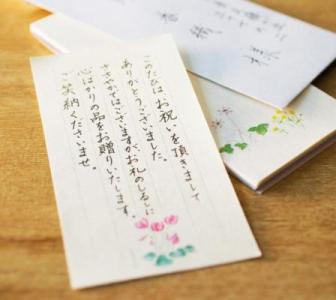 このたびは、お祝いを頂きまして
ありがとうございました。
ささやかではございますがお礼のしるしに
心ばかりの品をお贈りいたします。
ご笑納くださいませ。
様